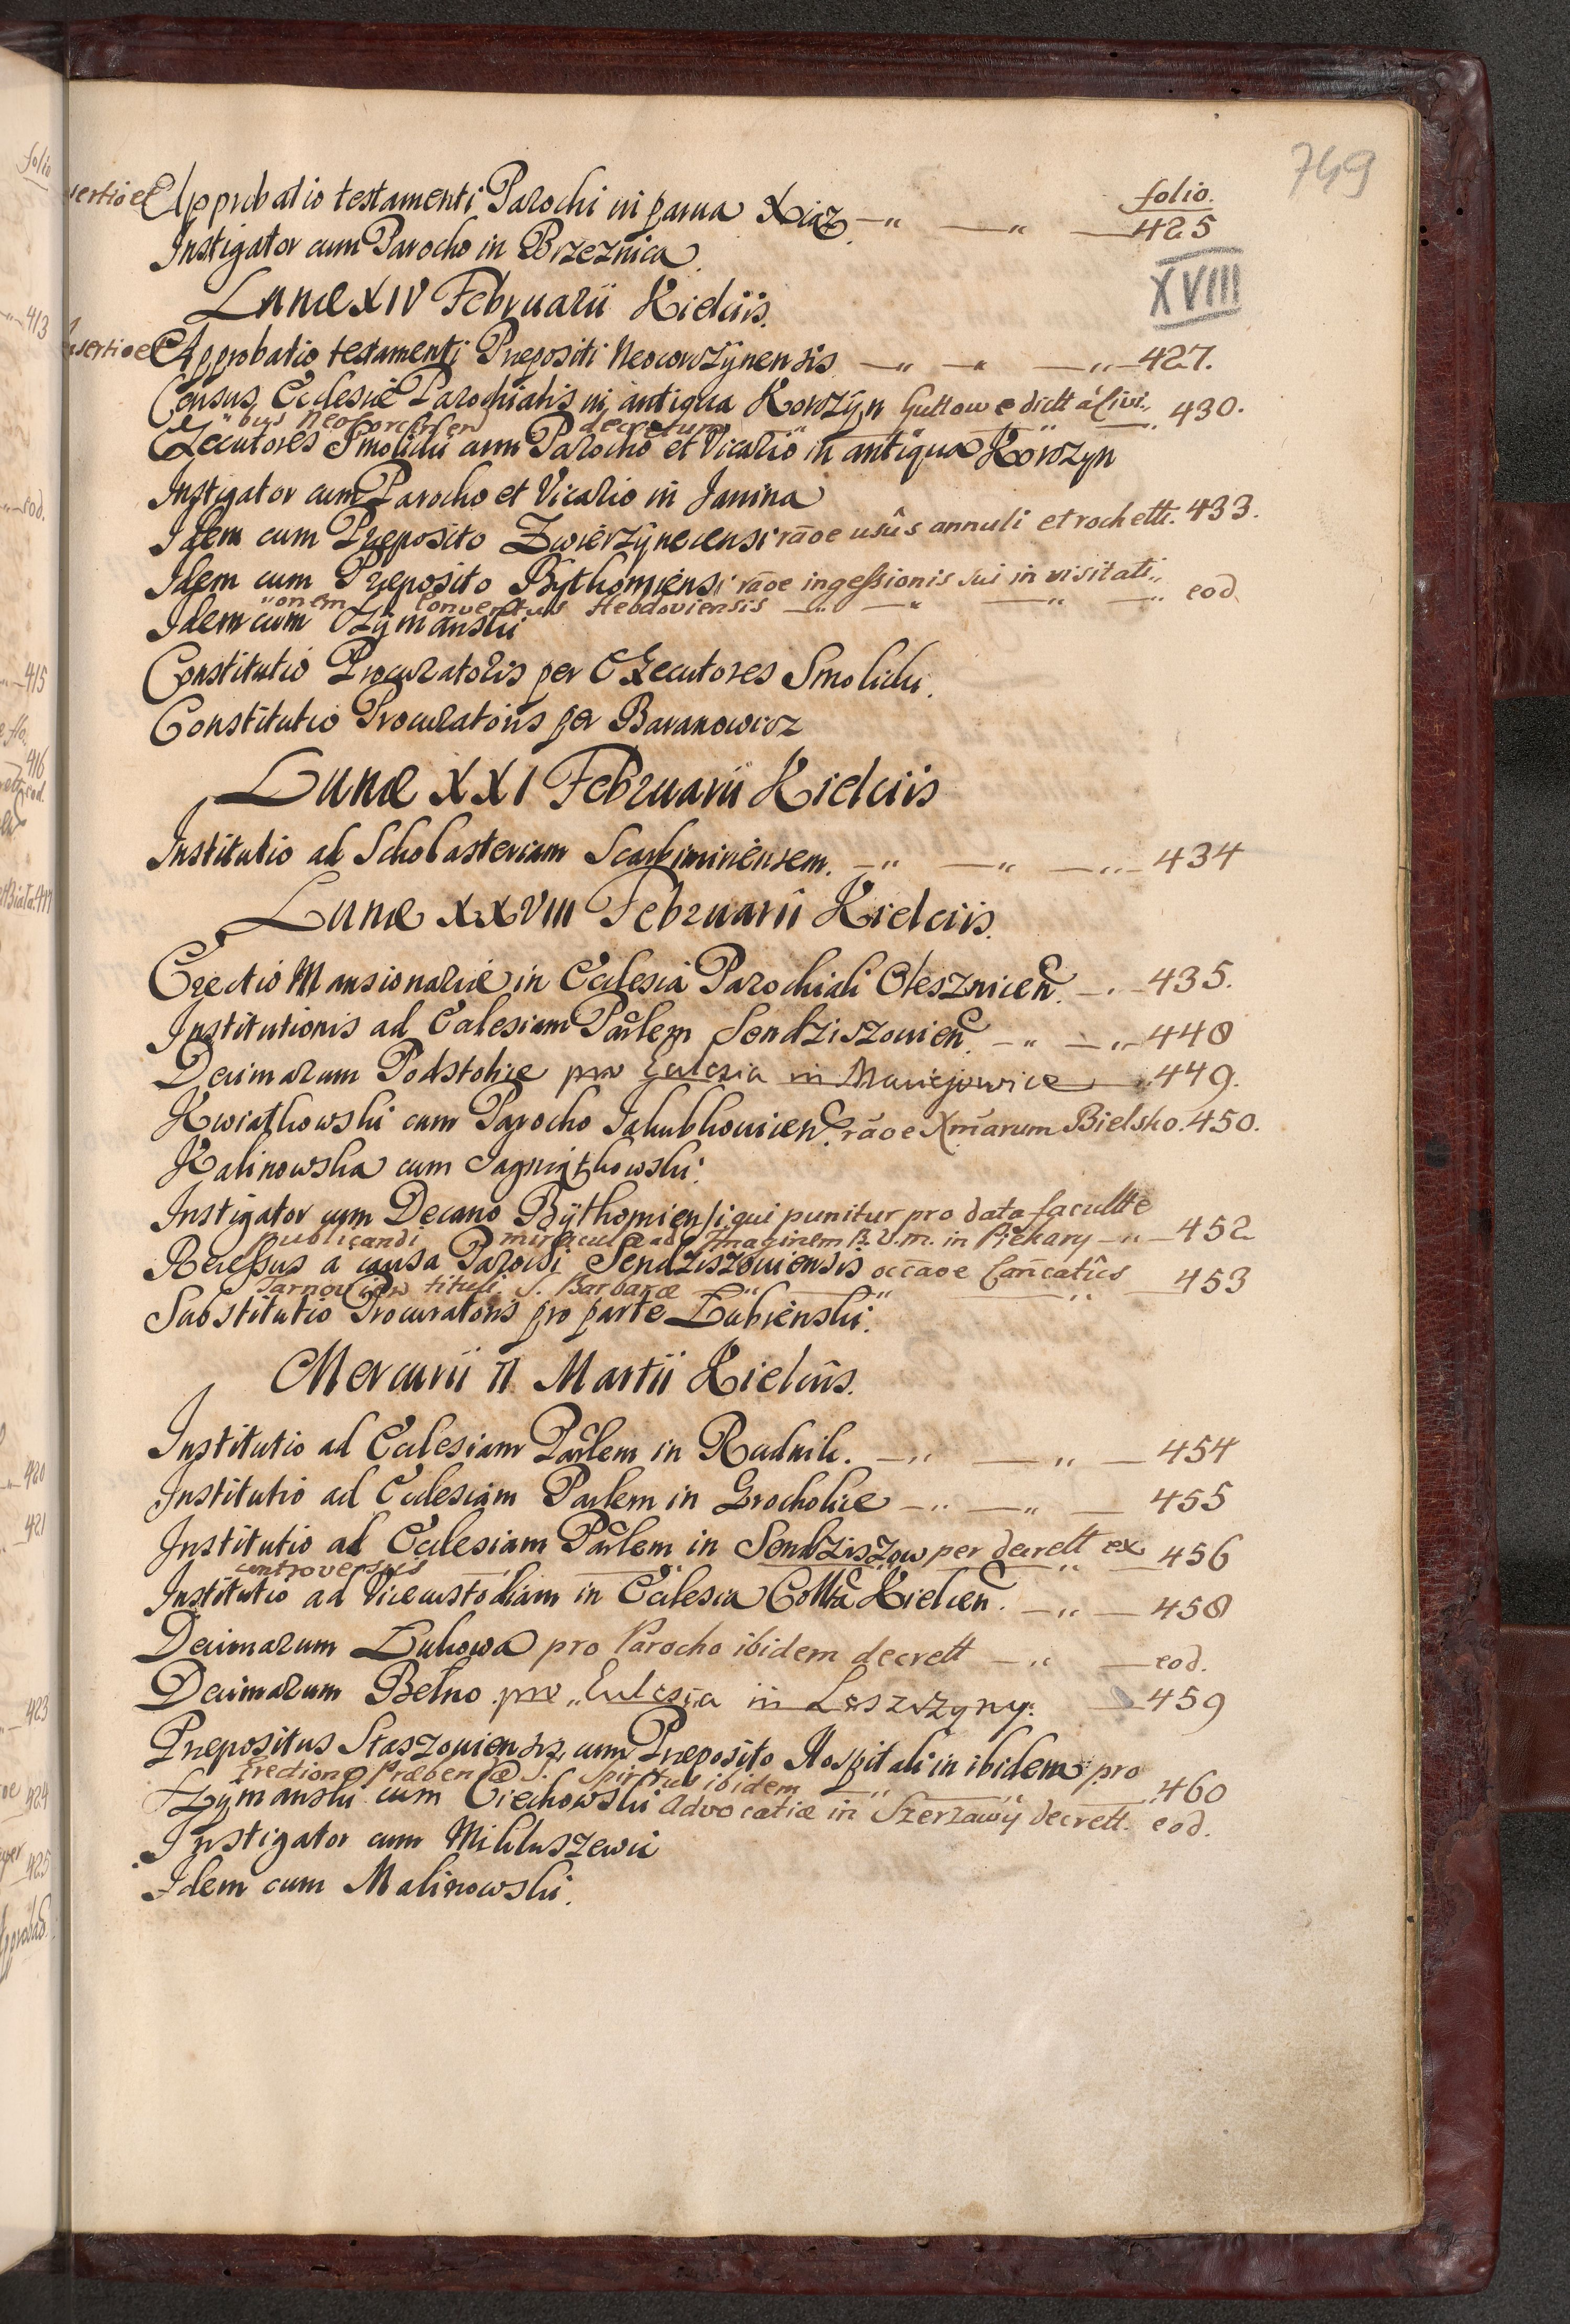 749
folio.
Insertio et Approbatio testamenti Parochi in parua Xiaz — „ — „ — 425
Instigator cum Parocho in Brzeznica
XVIII
Lunæ XIV Februarii Kielciis.
Insertio et Approbatio testamenti Præpositi Neocorzÿnensis — „ — „ — „ — 427.
Census Ecclesiæ Parochialis in antiqua Korzÿn Guttow e dictt à Civi„ 430.
„bus Neokorcinen decretum — „ — „
Executores Smolidii cum Parocho et Vicario in antiqua Korzyn
Instigator cum Parocho et Vicario in Janina
Idem cum Præposito Zwierzÿnecensi rãoe usûs annuli et rochetti. 433.
Idem cum Præposito Bythomiensi rãoe ingessionis sui in visitati„
„onem Conventus Hebdoviensis — „ — „ — „ — „ eod.
Idem cum Szÿmanski
Constitutio Procuratoris per Executores Smolidii.
Constitutio Procuratoris per Baranowicz
Lunæ XXI Februarii Kielciis
Institutio ad Scholasteriam Scarbimiriensem. — „ — „ — „ — 434
Lunæ XXVIII Februarii Kielciis.
Erectio Mansionariæ in Ecclesia Parochiali Olesznicen. — „ — 435.
Institutionis ad Ecclesiam Parlem Sendziszovien. — „ — „ — 448
Decimarum Podstolice pro Ecclesia in Maciejowice — 449.
Kwiatkowski cum Parocho Jakubkovicen. rãoe Xmarum Bielsko. 450.
Kalinowska cum Jagniątkowski.
Instigator cum Decano Bÿthomiensi qui punitur pro data facultte
publicandi miracula ad Imaginem B.V.M. in Piekary — „ — 452
Recessus a causa Parochi Sendziszoviensis occãoe Canᷓcatûs
Tarnovien tituli S. Barbaræ — „ — „ — „ — 453
Substitutio Procuratoris pro parte Łubienski.
Mercurii II Martii Kielciis.
Institutio ad Ecclesiam Parlem in Rudnik. — „ — „ — 454
Institutio ad Ecclesiam Parlem in Grocholice — „ — „ — 455
Institutio ad Ecclesiam Parlem in Sendziszow per decrett ex
controversiis — „ — „ — „ — 456
Institutio ad Vicecustodiam in Ecclesia Collta Kielcen. — „ — 458
Decimarum Łukowa pro Parocho ibidem decrett — „ — eod.
Decimarum Belno pro „Ecclesia in Leszczyny. — 459
Præpositus Staszoviensis cum Præposito Hospitali in ibidem pro
Eredione Præbendæ S. Spiritus ibidem — „ — 460
Szÿmanski cum Ciechowski Advocatiæ in Szerzawÿ decrett. eod.
Instigator cum Mikluszewic
Idem cum Malinowski.